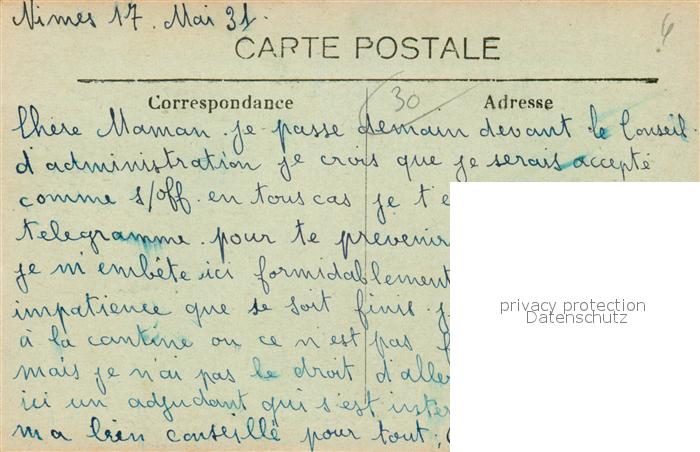 Nimes 17. Mai 31.
CARTE POSTALE
30
Correspondance
Adresse
Chère Maman. je passe demain devant le Conseil
d'administration je crois que je serais accepté
comme s/off. en tous cas je t'e
telegramme. pour te prevenir
je m'embête ici formidablement
impatience que se soit finis. j
à la cantine ou ce n'est pas f
mais je n'ai pas le droit d'alle
ici un adjudant qui s'est inter
m'a bien conseillé pour tout,
privacy protection
Datenschutz